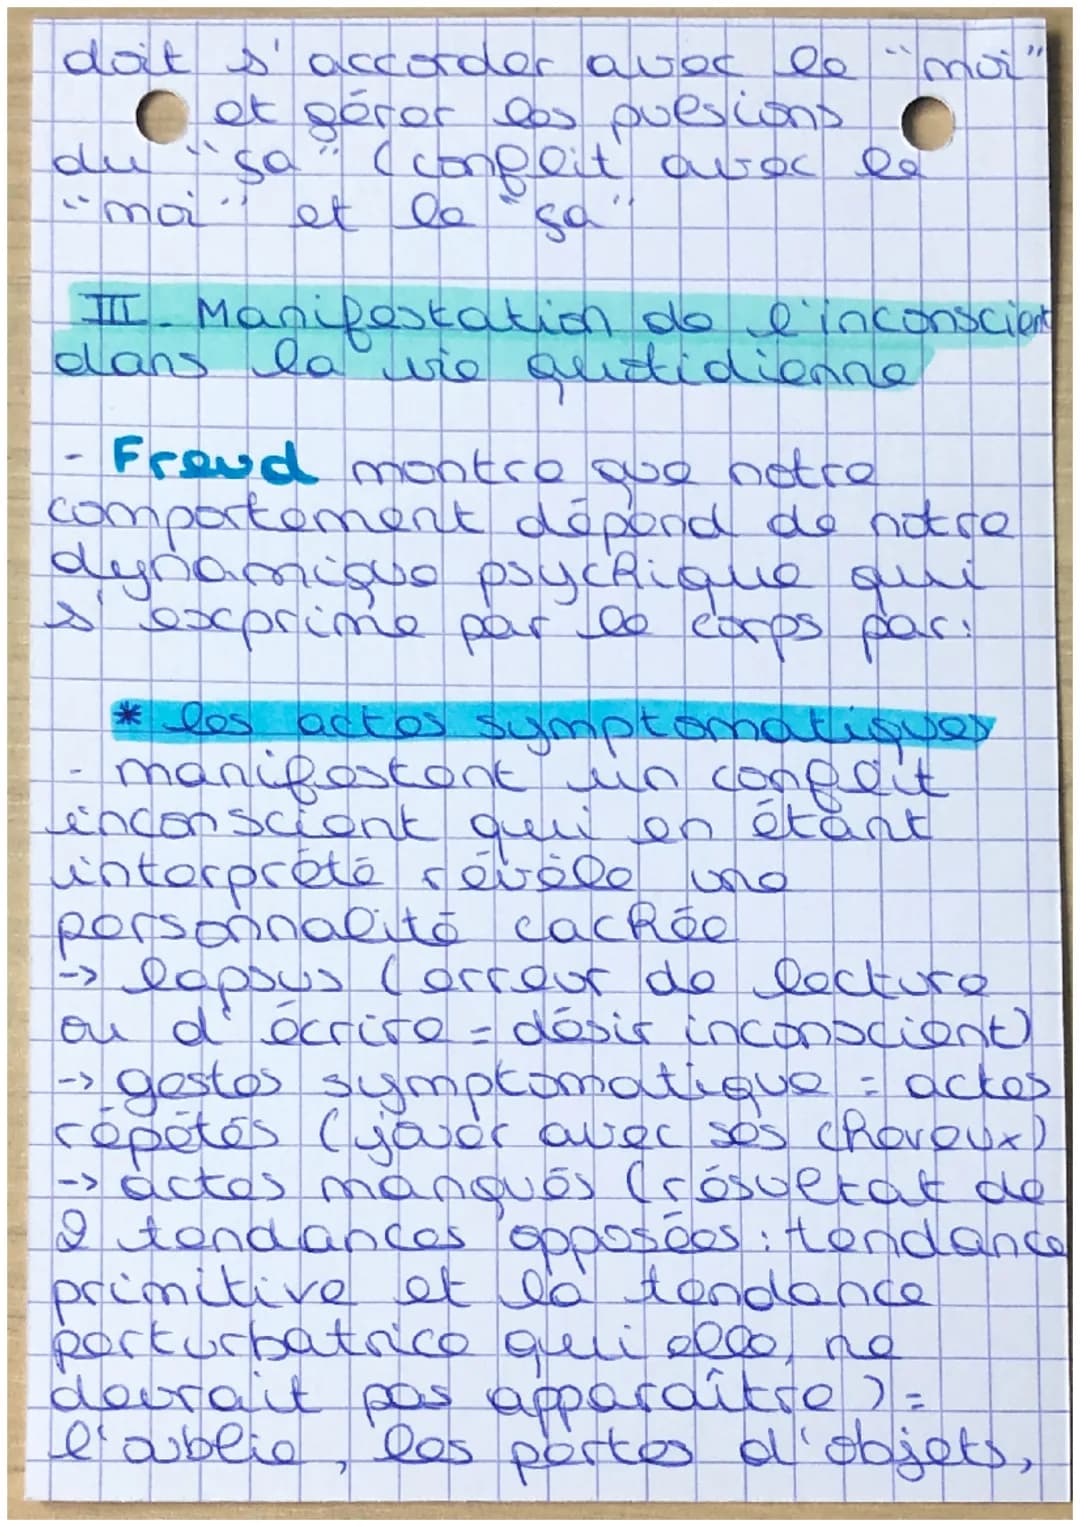 doit s'accorder avec le "moi"
et gérer les puesions
du "ça" (conflit avec le
"moi" et le "ça"
III. Manifestation de l'inconscient
dans la vie quotidienne
- Freud montre que notre
comportement dépend de notre
dynamique psychique qui
s'exprime par le corps par:
* les actes symptomatiques
- manifestent un conflit
inconscient qui en étant
interprété révèle une
personnalité cachée
-> lapsus (erreur de lecture
ou d'écrire = désir inconscient)
-> gestes symptomatique = actes
répétés (jouer avec ses cheveux)
-> actes manqués (résultat de
2 tendances opposées : tendance
primitive et la tendance
perturbatrice qui elle, ne
devrait pas apparaître) =
l'oublie, les pertes d'objets,